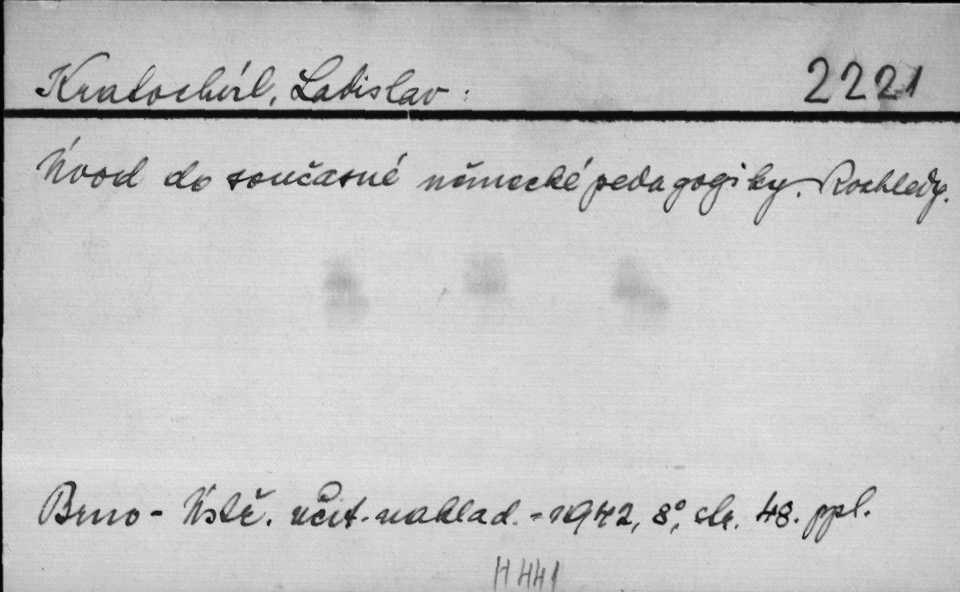 Kratochvíl, Ladislav: 2221
Úvod do současné německé pedagogiky. Rozhledy.
Brno - Ústř. učit. naklad. - 1942, 8°, str. 48. ppl.
H 441